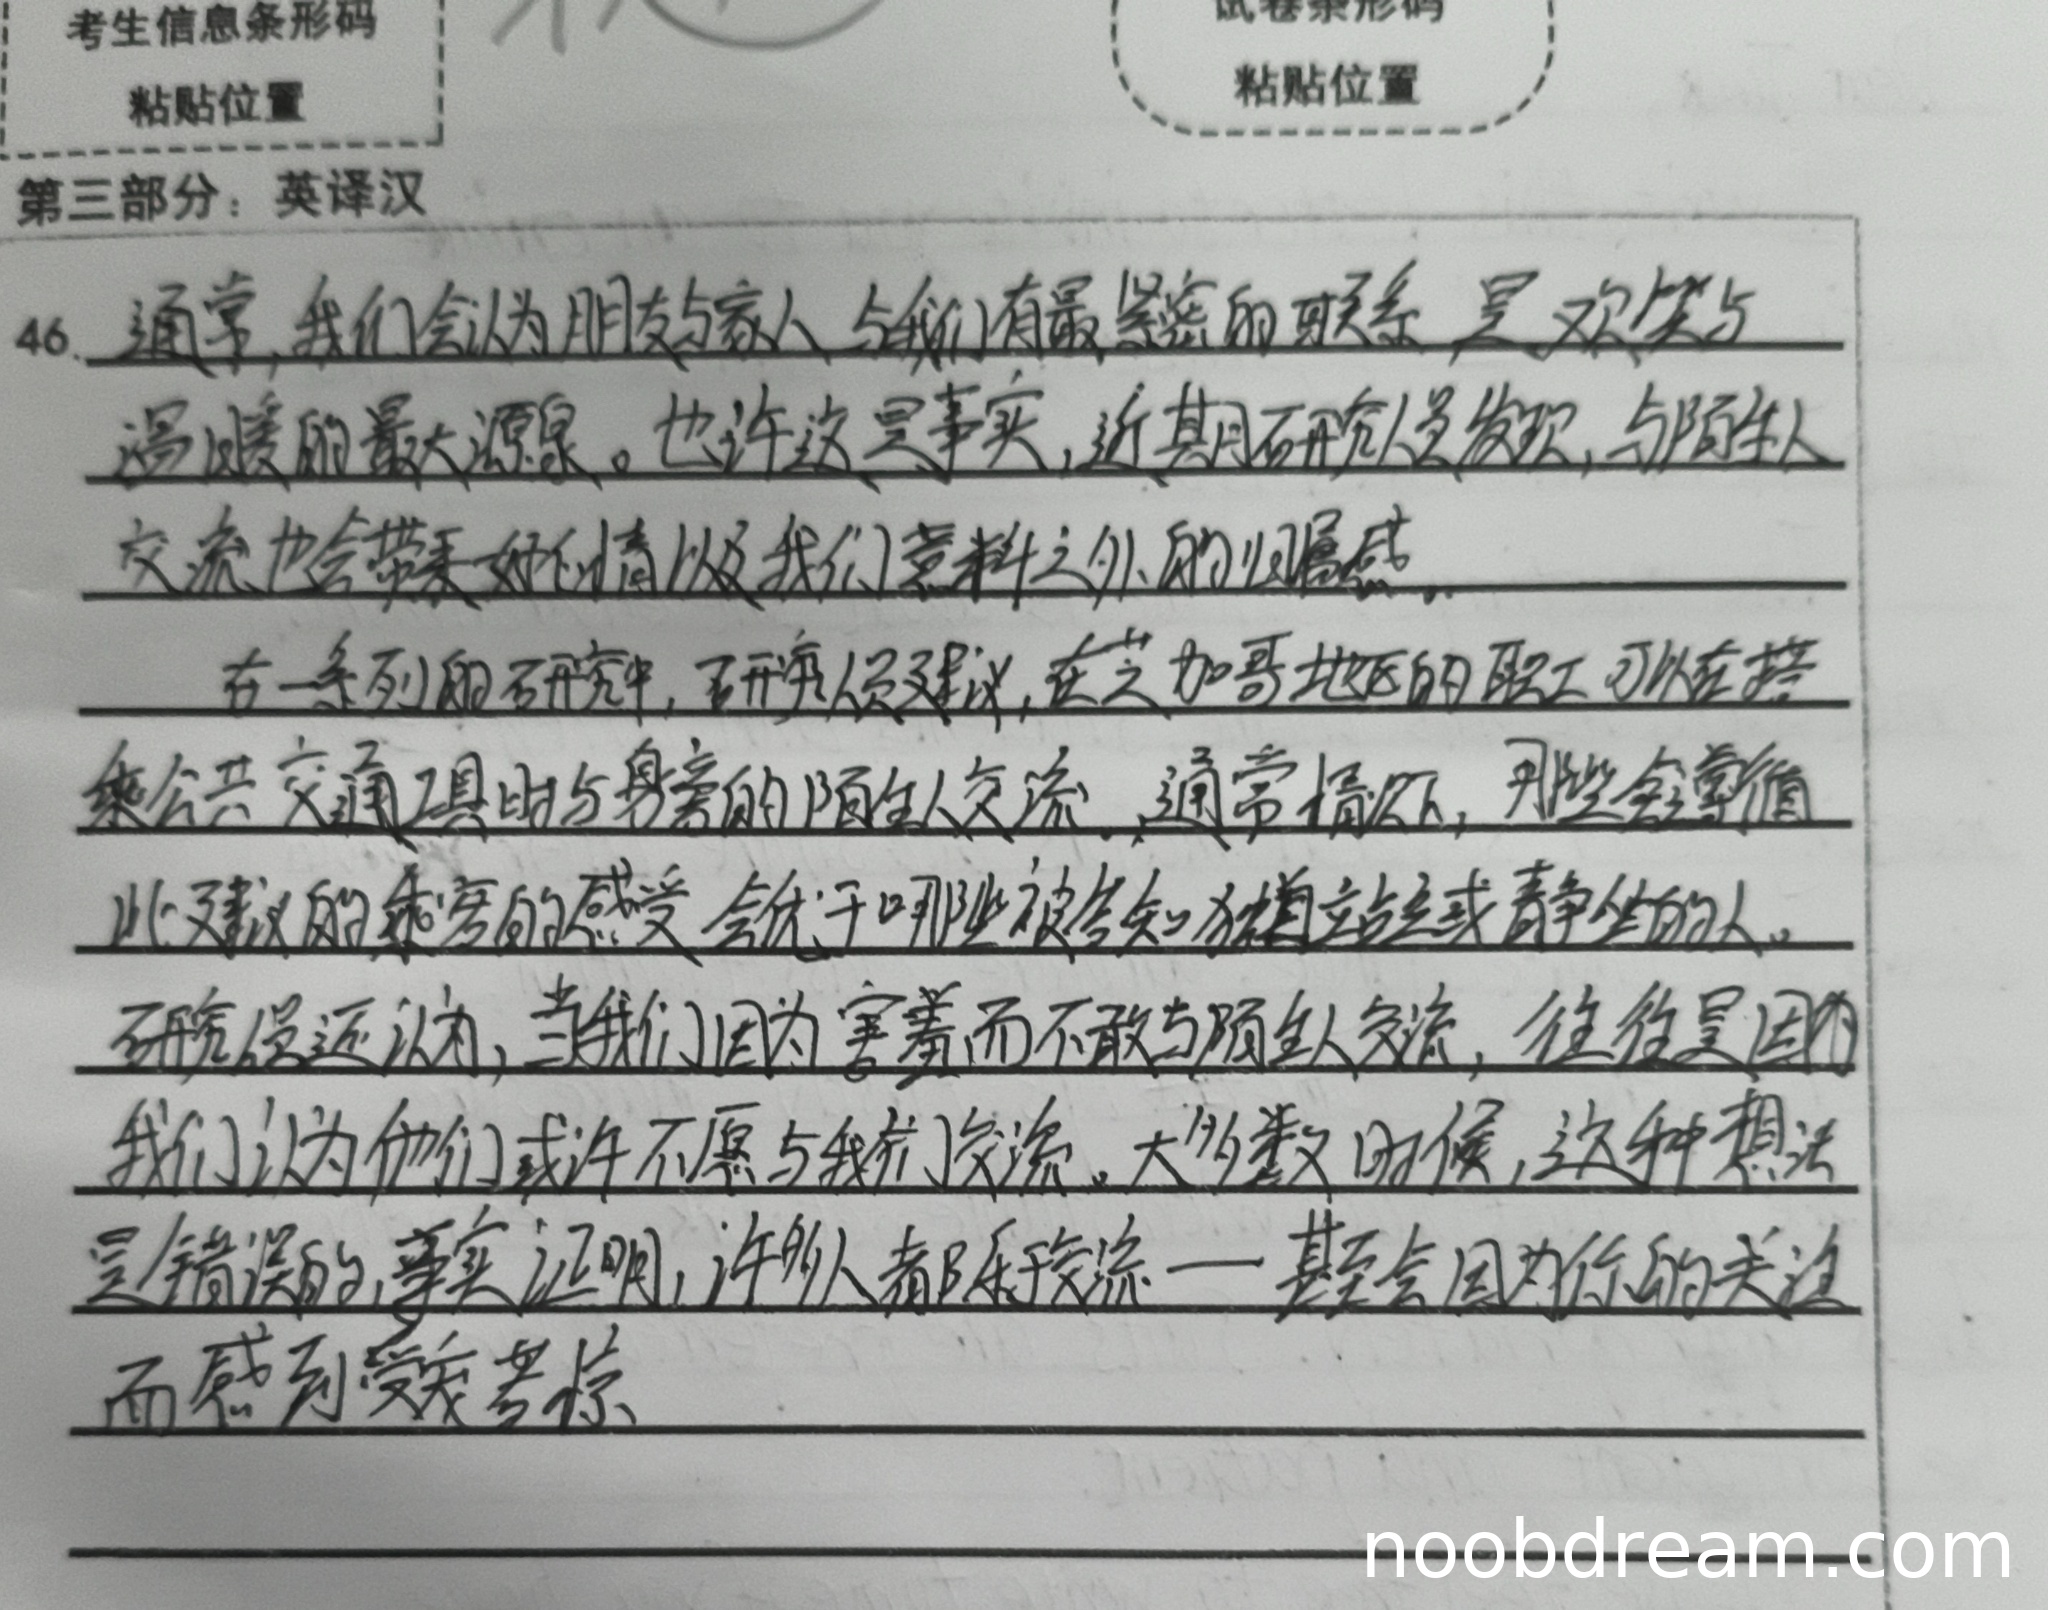 考生信息条形码
粘贴位置
试卷条形码
粘贴位置
第三部分：英译汉
46. 通常，我们会认为朋友与家人与我们有最紧密的联系 是欢笑与
温暖的最大源泉。也许这是事实，近期研究人员发现，与陌生人
交流也会带来好心情以及我们意料之外的归属感。
在一系列的研究中，研究人员建议，在芝加哥地区的职工可以在搭
乘公共交通工具时与身旁的陌生人交流，通常情况下，那些会遵循
此建议的乘客的感受会优于那些被告知独自站立或静坐的人。
研究员还认为，当我们因为害羞而不敢与陌生人交流，往往是因为
我们认为他们或许不愿与我们交流。大多数时候，这种想法
是错误的，事实证明，许多人都乐于交流——甚至会因为你的关注
而感到受宠若惊
noobdream.com